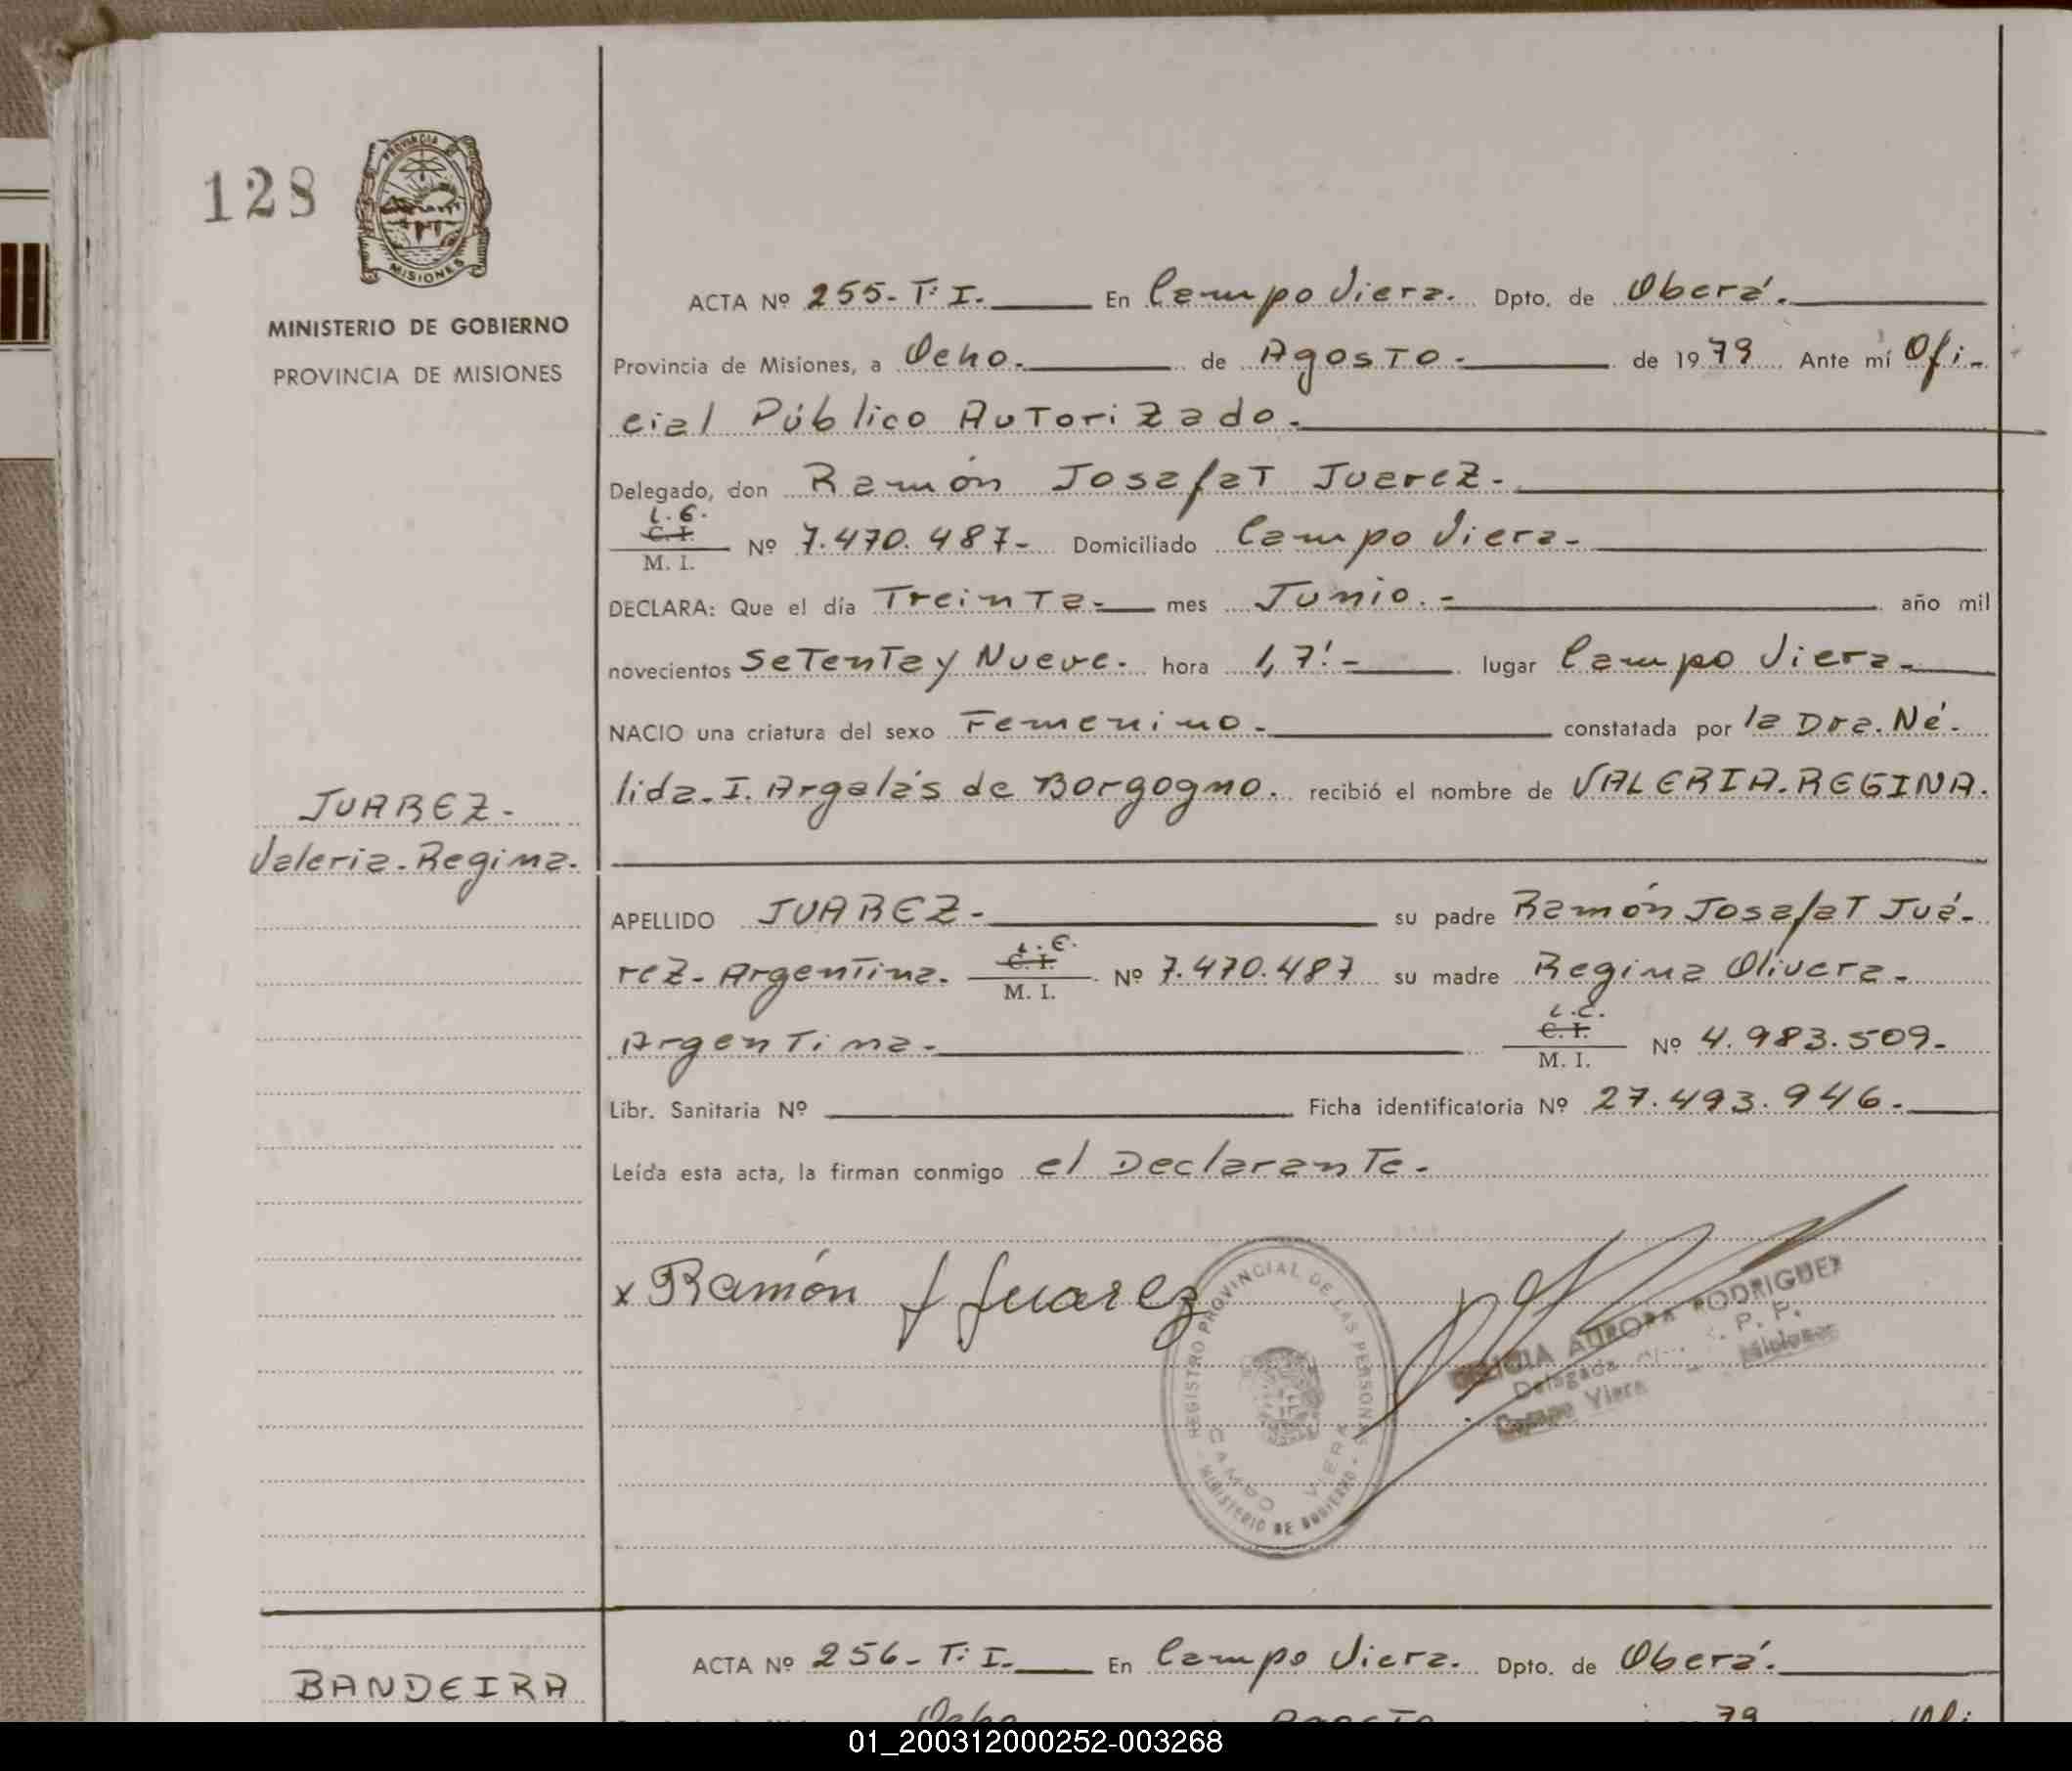 128
PROVINCIA DE
MISIONES
MINISTERIO DE GOBIERNO
PROVINCIA DE MISIONES
JUAREZ-
Valeria-Regina.
ACTA Nº 255-T:I. En Campo Viera. Dpto. de Oberá.
Provincia de Misiones, a Ocho. de Agosto.- de 1979 Ante mí Ofi-
cial Público Autorizado.
Delegado, don Ramón Josafat Juarez.
L.E.
C.I.
M. I. Nº 7.470.487- Domiciliado Campo Viera-
DECLARA: Que el día Treinta- mes Junio.- año mil
novecientos Setenta y Nueve. hora 17!- lugar Campo Viera-
NACIO una criatura del sexo Femenino- constatada por la Dra. Né-
lida-I. Argalás de Borgogno. recibió el nombre de VALERIA-REGINA.
APELLIDO JUAREZ- su padre Ramón Josafat Juá-
rez- Argentina. L.E. C.I. M. I. Nº 7.470.487 su madre Regina Olivera-
Argentina- L.C. C.I. M. I. Nº 4.983.509-
Libr. Sanitaria Nº Ficha identificatoria Nº 27.493.946-
Leída esta acta, la firman conmigo el Declarante-
x Ramón J Juarez
REGISTRO PROVINCIAL DE LAS PERSONAS
CAMPO VIERA
- MINISTERIO DE GOBIERNO -
AURORA RODRIGUEZ
Delegada R. P. P.
Campo Viera - Misiones
BANDEIRA
ACTA Nº 256-T:I. En Campo Viera. Dpto. de Oberá.
Ocho Agosto 79 Ofi
01_200312000252-003268